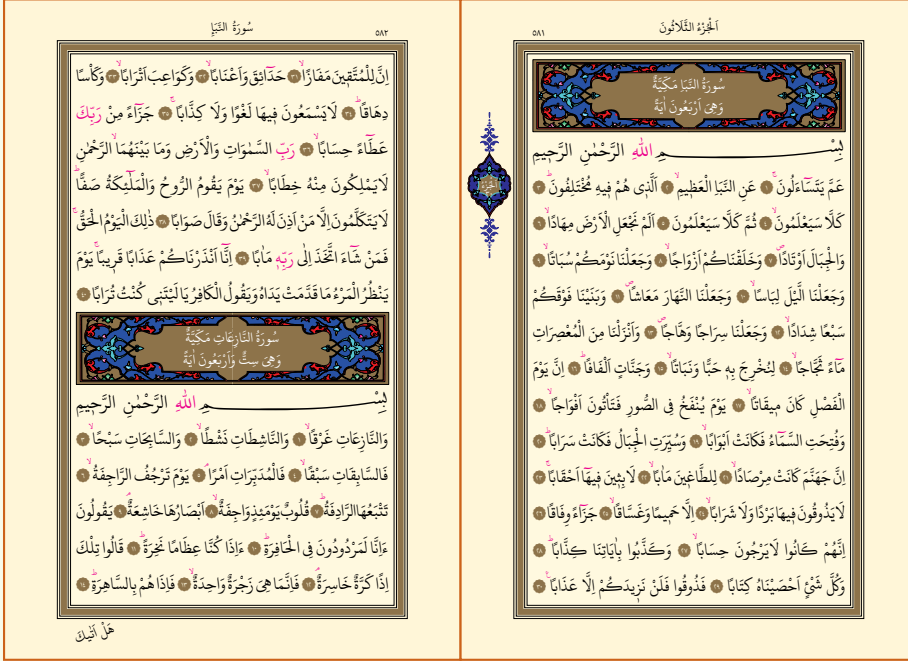 اَلْجُزْءُ الثَّلَاثُونَ
٥٨١
سُورَةُ النَّبَاِ مَكِّيَّةٌ
وَهِىَ اَرْبَعُونَ اٰيَةً
بِسْمِ اللّٰهِ الرَّحْمٰنِ الرَّحِيمِ
عَمَّ يَتَسَٓاءَلُونَۚ ١ عَنِ النَّبَاِ الْعَظِيمِۙ ٢ اَلَّذِى هُمْ فِيهِ مُخْتَلِفُونَۜ ٣
كَلَّا سَيَعْلَمُونَۙ ٤ ثُمَّ كَلَّا سَيَعْلَمُونَ ٥ اَلَمْ نَجْعَلِ الْاَرْضَ مِهَادًاۙ ٦
وَالْجِبَالَ اَوْتَادًاۖ ٧ وَخَلَقْنَاكُمْ اَزْوَاجًاۙ ٨ وَجَعَلْنَا نَوْمَكُمْ سُبَاتًاۙ ٩
وَجَعَلْنَا الَّيْلَ لِبَاسًاۙ ١٠ وَجَعَلْنَا النَّهَارَ مَعَاشًاۖ ١١ وَبَنَيْنَا فَوْقَكُمْ
سَبْعًا شِدَادًاۙ ١٢ وَجَعَلْنَا سِرَاجًا وَهَّاجًاۖ ١٣ وَاَنْزَلْنَا مِنَ الْمُعْصِرَاتِ
مَٓاءً ثَجَّاجًاۙ ١٤ لِنُخْرِجَ بِهِ حَبًّا وَنَبَاتًاۙ ١٥ وَجَنَّاتٍ اَلْفَافًاۜ ١٦ اِنَّ يَوْمَ
الْفَصْلِ كَانَ مِيقَاتًاۙ ١٧ يَوْمَ يُنْفَخُ فِى الصُّورِ فَتَأْتُونَ اَفْوَاجًاۙ ١٨
وَفُتِحَتِ السَّمَٓاءُ فَكَانَتْ اَبْوَابًاۙ ١٩ وَسُيِّرَتِ الْجِبَالُ فَكَانَتْ سَرَابًاۜ ٢٠
اِنَّ جَهَنَّمَ كَانَتْ مِرْصَادًاۙ ٢١ لِلطَّاغِينَ مَاٰبًاۙ ٢٢ لَابِثِينَ فِيهَٓا اَحْقَابًاۚ ٢٣
لَا يَذُوقُونَ فِيهَا بَرْدًا وَلَا شَرَابًاۙ ٢٤ اِلَّا حَمِيمًا وَغَسَّاقًاۙ ٢٥ جَزَٓاءً وِفَاقًاۜ ٢٦
اِنَّهُمْ كَانُوا لَا يَرْجُونَ حِسَابًاۙ ٢٧ وَكَذَّبُوا بِاٰيَاتِنَا كِذَّابًاۜ ٢٨
وَكُلَّ شَىْءٍ اَحْصَيْنَاهُ كِتَابًاۙ ٢٩ فَذُوقُوا فَلَنْ نَزِيدَكُمْ اِلَّا عَذَابًا۟ ٣٠
سُورَةُ النَّبَاِ
٥٨٢
اِنَّ لِلْمُتَّقِينَ مَفَازًاۙ ٣١ حَدَٓائِقَ وَاَعْنَابًاۙ ٣٢ وَكَوَاعِبَ اَتْرَابًاۙ ٣٣ وَكَأْسًا
دِهَاقًاۜ ٣٤ لَا يَسْمَعُونَ فِيهَا لَغْوًا وَلَا كِذَّابًاۚ ٣٥ جَزَٓاءً مِنْ رَبِّكَ
عَطَٓاءً حِسَابًاۙ ٣٦ رَبِّ السَّمٰوَاتِ وَالْاَرْضِ وَمَا بَيْنَهُمَا الرَّحْمٰنِ
لَا يَمْلِكُونَ مِنْهُ خِطَابًاۚ ٣٧ يَوْمَ يَقُومُ الرُّوحُ وَالْمَلٰٓئِكَةُ صَفًّاۜ
لَا يَتَكَلَّمُونَ اِلَّا مَنْ اَذِنَ لَهُ الرَّحْمٰنُ وَقَالَ صَوَابًا ٣٨ ذٰلِكَ الْيَوْمُ الْحَقُّۚ
فَمَنْ شَٓاءَ اتَّخَذَ اِلٰى رَبِّهِ مَاٰبًا ٣٩ اِنَّٓا اَنْذَرْنَاكُمْ عَذَابًا قَرِيبًاۚ يَوْمَ
يَنْظُرُ الْمَرْءُ مَا قَدَّمَتْ يَدَاهُ وَيَقُولُ الْكَافِرُ يَا لَيْتَنِى كُنْتُ تُرَابًا ٤٠
سُورَةُ النَّازِعَاتِ مَكِّيَّةٌ
وَهِىَ سِتٌّ وَاَرْبَعُونَ اٰيَةً
بِسْمِ اللّٰهِ الرَّحْمٰنِ الرَّحِيمِ
وَالنَّازِعَاتِ غَرْقًاۙ ١ وَالنَّاشِطَاتِ نَشْطًاۙ ٢ وَالسَّابِحَاتِ سَبْحًاۙ ٣
فَالسَّابِقَاتِ سَبْقًاۙ ٤ فَالْمُدَبِّرَاتِ اَمْرًاۢ ٥ يَوْمَ تَرْجُفُ الرَّاجِفَةُۙ ٦
تَتْبَعُهَا الرَّادِفَةُۜ ٧ قُلُوبٌ يَوْمَئِذٍ وَاجِفَةٌۙ ٨ اَبْصَارُهَا خَاشِعَةٌۢ ٩ يَقُولُونَ
ءَاِنَّا لَمَرْدُودُونَ فِى الْحَافِرَةِۜ ١٠ ءَاِذَا كُنَّا عِظَامًا نَخِرَةًۜ ١١ قَالُوا تِلْكَ
اِذًا كَرَّةٌ خَاسِرَةٌۢ ١٢ فَاِنَّمَا هِىَ زَجْرَةٌ وَاحِدَةٌۙ ١٣ فَاِذَا هُمْ بِالسَّاهِرَةِۜ ١٤
هَلْ اَتٰيكَ